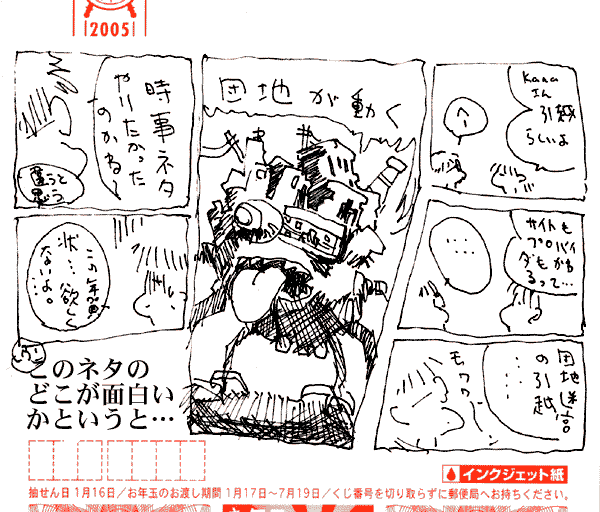 2005
Kana
さん
引越
らしいよ
へー
サイトも
プロバイ
ダもかわ
るって…
‥‥
団地迷宮
の引越
……
モワワ〜
団地が動く
時事ネタ
やりたかった
のかな〜
違うと
思う
この年賀
状…欲しく
ないよ。
このネタの
どこが面白い
かというと…
インクジェット紙
抽せん日 1月16日／お年玉のお渡し期間 1月17日〜7月19日／くじ番号を切り取らずに郵便局へお持ちください。